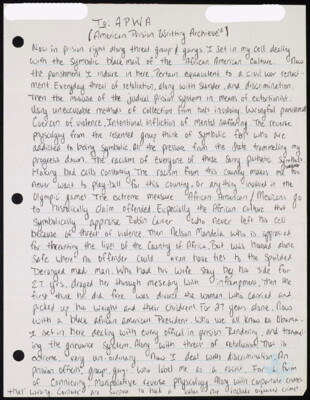 To: APWA
(American Prison Writting Archieve's)
Now in prison right along threat group & gangs. I set in my cell dealing
with the symbolic black mail of the African American Culture. Now
the punishment I indure in here. Pertains equivalent to a civil war
ment. Everyday threat of retaliation, along with slander, and discrimination.
Then the of the judical prison system in means of extortionist.
Using unexcusable methods of collection from bait involving wrongful punishment
of violence. Intentional infliction of mental suffering. The reverse
physcology from the resented group think of symbolic who are
addicted to being symbolic. All the pressure from the state trammeling my
progress down. The racisms of everyone of these sorry pathetic symbol's
Making bad calls conveying. The racism from this county makes me
never want to play ball for this country. Or anything involved in the
Olympic games. The extreme measure African American/Mexicans go
to Mythically claim offended. Especially the African culture that
symbolically appraise Rubin Carter. Who never left his cell
because of threat of violence. Then Nelson Mandela who is approved
for threating the lives of the Country of Africa. But was housed alone
safe where no offender could ever have ties to the spoiled
Deranged mad man. Who had his wife stay by his side for
27 yrs. draged her through meseary with inprisonment, then the
first thing he did free was divorce the woman who carried and
picked up his weight and their children for 27 years alone. Now
with a black african American President who we all know as Obama.
I set in here dealing with every official in prison Rendering, and
ing the grievance system. Along with threat of retaliation that is
extreme, very un-ordinary. Now I deal with discrimination. An
prison officers group, guy who label me as a racist. For a form
of conniving, Manipulative reverse physcology. Along with corporate crimes
that working